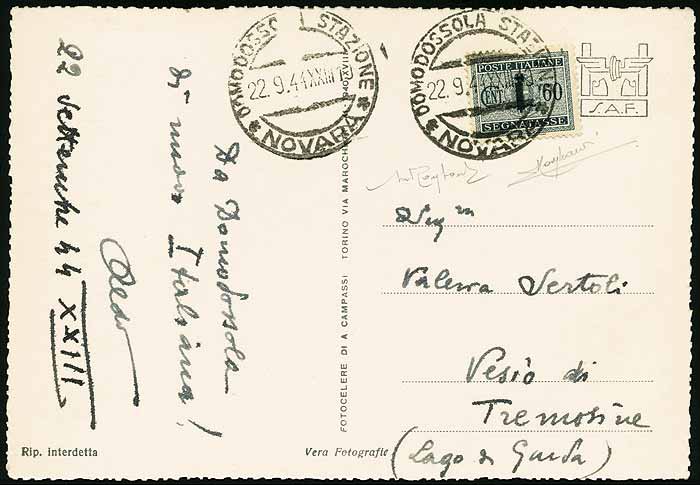 22 settembre 44 XXIII
Da Domodossola
di nuovo Italiana!
Rip. interdetta
Vera Fotografia
FOTOCELERE DI A CAMPASSI TORINO VIA MAROCH
DOMODOSSOLA STAZIONE
22.9.44 XXIII
* NOVARA *
DOMODOSSOLA STAZ
22.9.4
* NOVARA
POSTE ITALIANE
CENT. 60
SEGNATASSE
S.A.F.
Valeria Sertoli
Vesio di
Tremosine
(Lago di Garda)